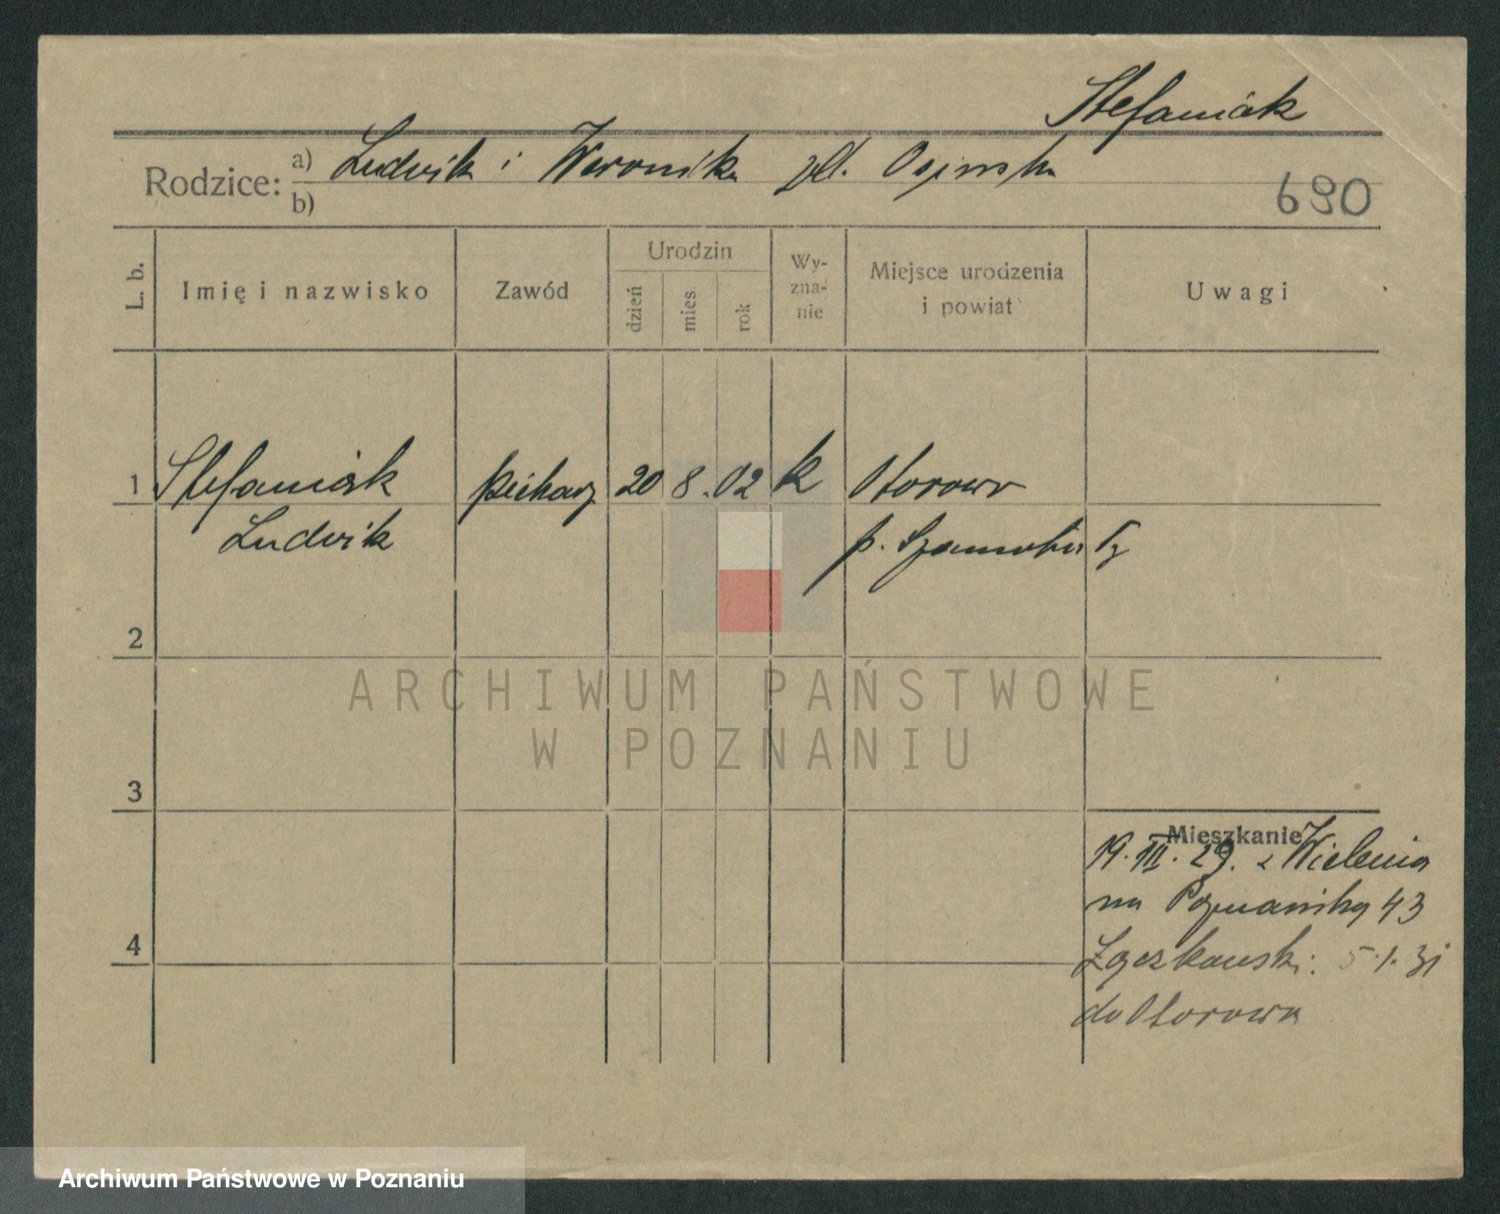 Stefaniak
Rodzice: a) Ludwik i Weronika
b)
690
L. b.
Imię i nazwisko
Zawód
Urodzin
dzień
mies
rok
Wy-
zna-
nie
Miejsce urodzenia
i powiat
Uwagi
1 Stefaniak piekarz 20 8. 02 k Otorowo
Ludwik p. Szamotuły
2
ARCHIWUM PAŃSTWOWE
W POZNANIU
3
Mieszkanie
19. III. 29. z Wielenia
na Poznańską 43
Łączkowski: 5.1.31
do Otorowa
4
Archiwum Państwowe w Poznaniu